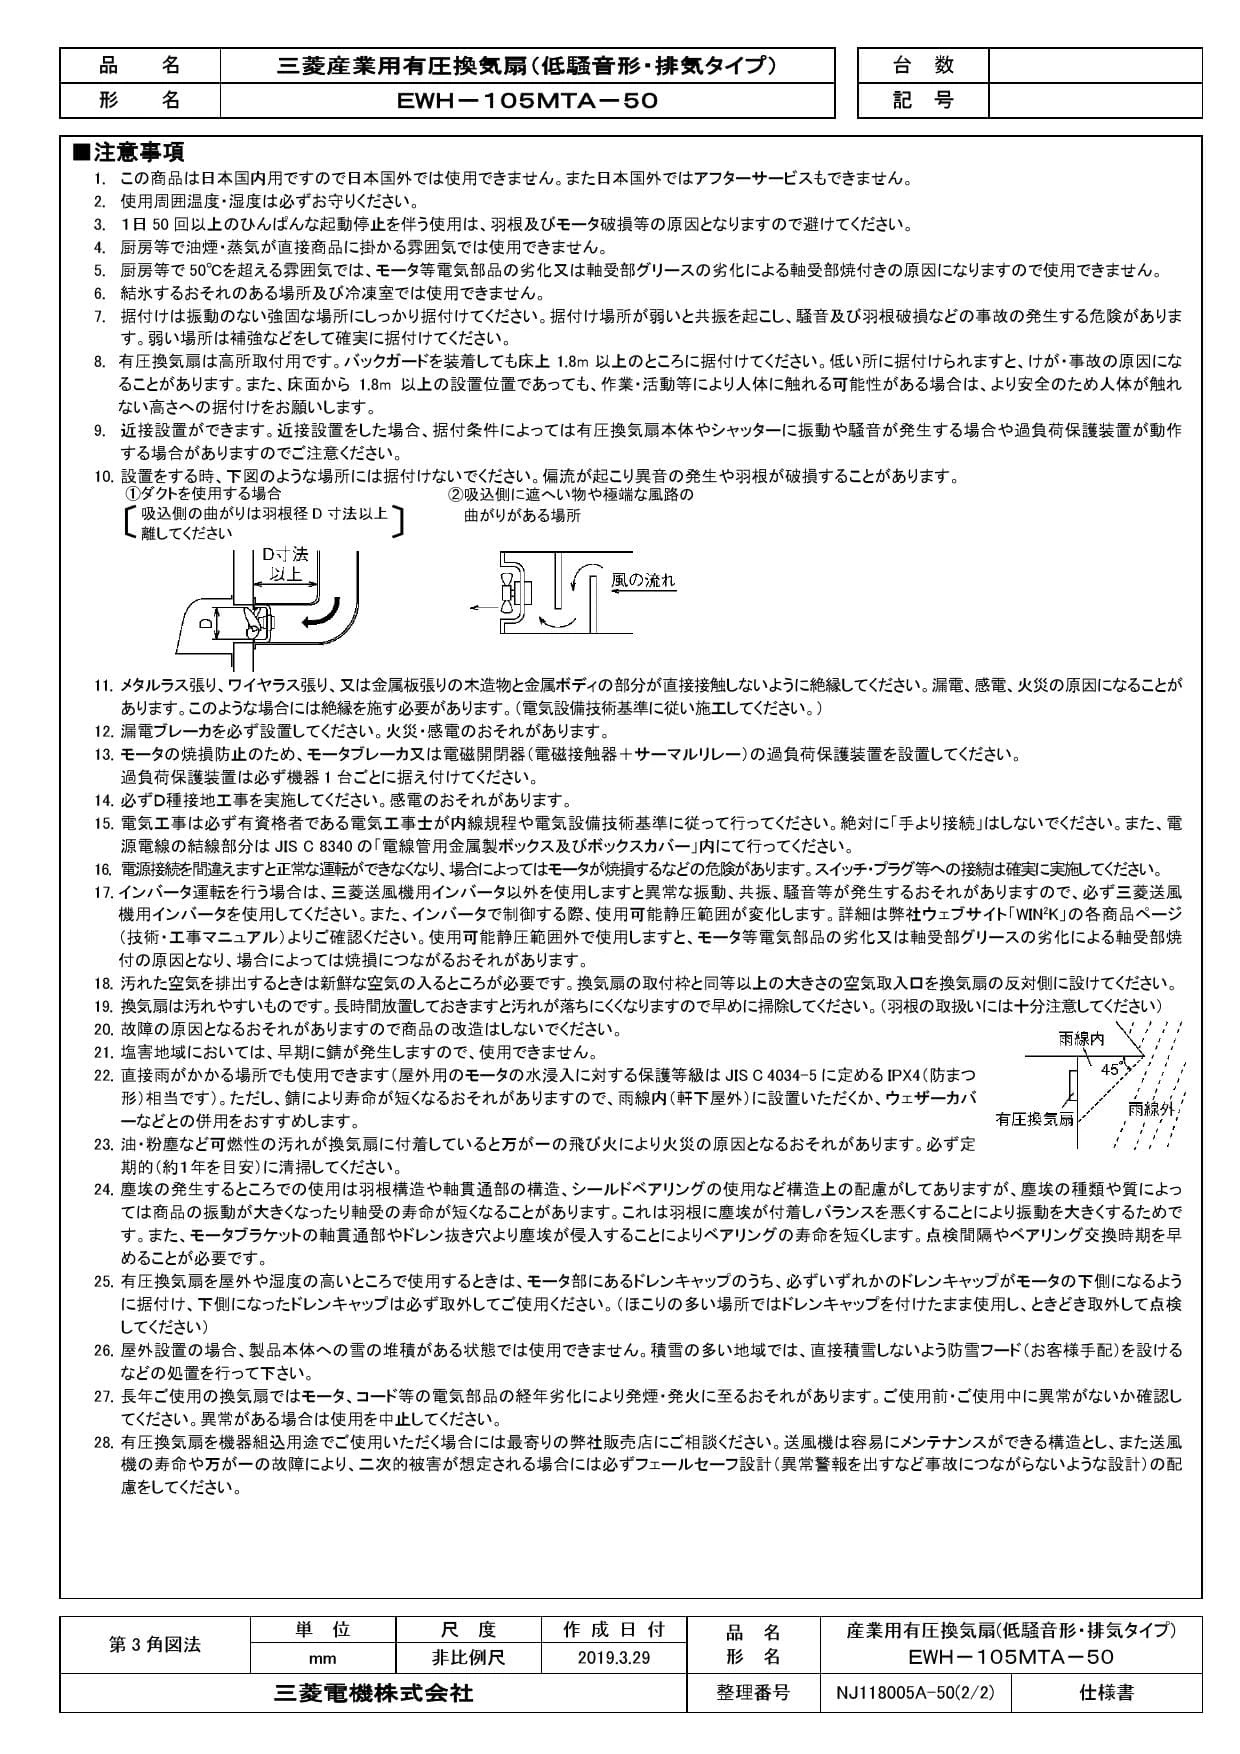 品 名 三菱産業用有圧換気扇(低騒音形・排気タイプ) 台 数
形 名 EWH－105MTA－50 記 号
■注意事項
1. この商品は日本国内用ですので日本国外では使用できません。また日本国外ではアフターサービスもできません。
2. 使用周囲温度・湿度は必ずお守りください。
3. 1日 50 回以上のひんぱんな起動停止を伴う使用は、羽根及びモータ破損等の原因となりますので避けてください。
4. 厨房等で油煙・蒸気が直接商品に掛かる雰囲気では使用できません。
5. 厨房等で 50℃を超える雰囲気では、モータ等電気部品の劣化又は軸受部グリースの劣化による軸受部焼付きの原因になりますので使用できません。
6. 結氷するおそれのある場所及び冷凍室では使用できません。
7. 据付けは振動のない強固な場所にしっかり据付けてください。据付け場所が弱いと共振を起こし、騒音及び羽根破損などの事故の発生する危険がありま
す。弱い場所は補強などをして確実に据付けてください。
8. 有圧換気扇は高所取付用です。バックガードを装着しても床上 1.8m 以上のところに据付けてください。低い所に据付けられますと、けが・事故の原因にな
ることがあります。また、床面から 1.8m 以上の設置位置であっても、作業・活動等により人体に触れる可能性がある場合は、より安全のため人体が触れ
ない高さへの据付けをお願いします。
9. 近接設置ができます。近接設置をした場合、据付条件によっては有圧換気扇本体やシャッターに振動や騒音が発生する場合や過負荷保護装置が動作
する場合がありますのでご注意ください。
10. 設置をする時、下図のような場所には据付けないでください。偏流が起こり異音の発生や羽根が破損することがあります。
①ダクトを使用する場合 ②吸込側に遮へい物や極端な風路の
吸込側の曲がりは羽根径 D 寸法以上 曲がりがある場所
離してください
D寸法
以上
風の流れ
D
11. メタルラス張り、ワイヤラス張り、又は金属板張りの木造物と金属ボディの部分が直接接触しないように絶縁してください。漏電、感電、火災の原因になることが
あります。このような場合には絶縁を施す必要があります。(電気設備技術基準に従い施工してください。)
12. 漏電ブレーカを必ず設置してください。火災・感電のおそれがあります。
13. モータの焼損防止のため、モータブレーカ又は電磁開閉器(電磁接触器＋サーマルリレー)の過負荷保護装置を設置してください。
過負荷保護装置は必ず機器 1 台ごとに据え付けてください。
14. 必ずD種接地工事を実施してください。感電のおそれがあります。
15. 電気工事は必ず有資格者である電気工事士が内線規程や電気設備技術基準に従って行ってください。絶対に「手より接続」はしないでください。また、電
源電線の結線部分は JIS C 8340 の「電線管用金属製ボックス及びボックスカバー」内にて行ってください。
16. 電源接続を間違えますと正常な運転ができなくなり、場合によってはモータが焼損するなどの危険があります。スイッチ・プラグ等への接続は確実に実施してください。
17. インバータ運転を行う場合は、三菱送風機用インバータ以外を使用しますと異常な振動、共振、騒音等が発生するおそれがありますので、必ず三菱送風
機用インバータを使用してください。また、インバータで制御する際、使用可能静圧範囲が変化します。詳細は弊社ウェブサイト「WIN²K」の各商品ページ
(技術・工事マニュアル)よりご確認ください。使用可能静圧範囲外で使用しますと、モータ等電気部品の劣化又は軸受部グリースの劣化による軸受部焼
付の原因となり、場合によっては焼損につながるおそれがあります。
18. 汚れた空気を排出するときは新鮮な空気の入るところが必要です。換気扇の取付枠と同等以上の大きさの空気取入口を換気扇の反対側に設けてください。
19. 換気扇は汚れやすいものです。長時間放置しておきますと汚れが落ちにくくなりますので早めに掃除してください。(羽根の取扱いには十分注意してください)
20. 故障の原因となるおそれがありますので商品の改造はしないでください。
21. 塩害地域においては、早期に錆が発生しますので、使用できません。
22. 直接雨がかかる場所でも使用できます(屋外用のモータの水浸入に対する保護等級は JIS C 4034-5 に定める IPX4(防まつ
形)相当です)。ただし、錆により寿命が短くなるおそれがありますので、雨線内(軒下屋外)に設置いただくか、ウェザーカバ
ーなどとの併用をおすすめします。
雨線内
45°
雨線外
有圧換気扇
23. 油・粉塵など可燃性の汚れが換気扇に付着していると万が一の飛び火により火災の原因となるおそれがあります。必ず定
期的(約1年を目安)に清掃してください。
24. 塵埃の発生するところでの使用は羽根構造や軸貫通部の構造、シールドベアリングの使用など構造上の配慮がしてありますが、塵埃の種類や質によっ
ては商品の振動が大きくなったり軸受の寿命が短くなることがあります。これは羽根に塵埃が付着しバランスを悪くすることにより振動を大きくするためで
す。また、モータブラケットの軸貫通部やドレン抜き穴より塵埃が侵入することによりベアリングの寿命を短くします。点検間隔やベアリング交換時期を早
めることが必要です。
25. 有圧換気扇を屋外や湿度の高いところで使用するときは、モータ部にあるドレンキャップのうち、必ずいずれかのドレンキャップがモータの下側になるよう
に据付け、下側になったドレンキャップは必ず取外してご使用ください。(ほこりの多い場所ではドレンキャップを付けたまま使用し、ときどき取外して点検
してください)
26. 屋外設置の場合、製品本体への雪の堆積がある状態では使用できません。積雪の多い地域では、直接積雪しないよう防雪フード(お客様手配)を設ける
などの処置を行って下さい。
27. 長年ご使用の換気扇ではモータ、コード等の電気部品の経年劣化により発煙・発火に至るおそれがあります。ご使用前・ご使用中に異常がないか確認し
てください。異常がある場合は使用を中止してください。
28. 有圧換気扇を機器組込用途でご使用いただく場合には最寄りの弊社販売店にご相談ください。送風機は容易にメンテナンスができる構造とし、また送風
機の寿命や万が一の故障により、二次的被害が想定される場合には必ずフェールセーフ設計(異常警報を出すなど事故につながらないような設計)の配
慮をしてください。
第 3 角図法 単 位 尺 度 作 成 日 付 品 名 産業用有圧換気扇(低騒音形・排気タイプ)
mm 非比例尺 2019.3.29 形 名 EWH－105MTA－50
三菱電機株式会社 整理番号 NJ118005A-50(2/2) 仕様書